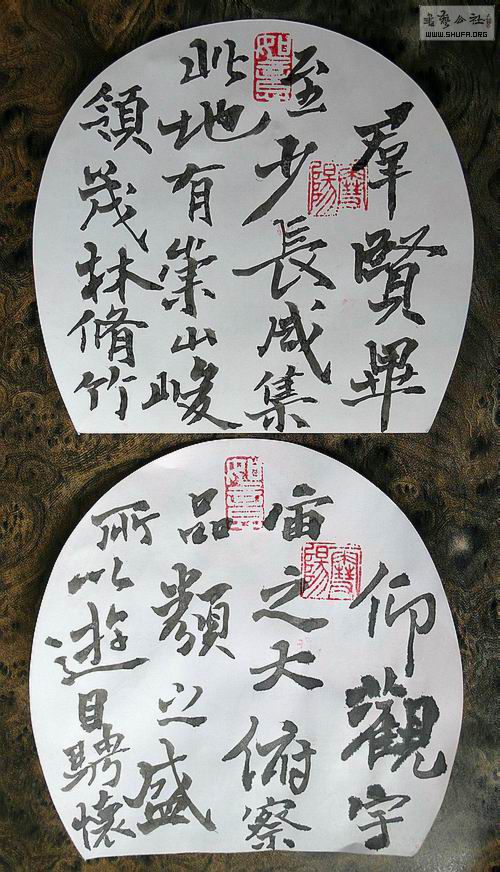 書藝公社
WWW.SHUFA.ORG
羣賢畢
至少長咸集
此地有崇山峻
領茂林脩竹
如意
仰觀宇
宙之大俯察
品類之盛
所以遊目騁懷
如意